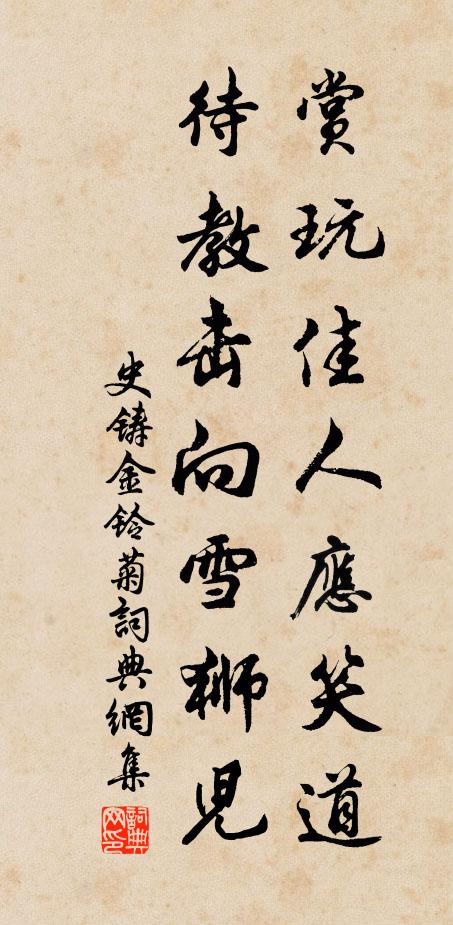 賞玩佳人應笑道
待教击向雪獅兒
史鑄金鈴菊詞典網集
詞典網印